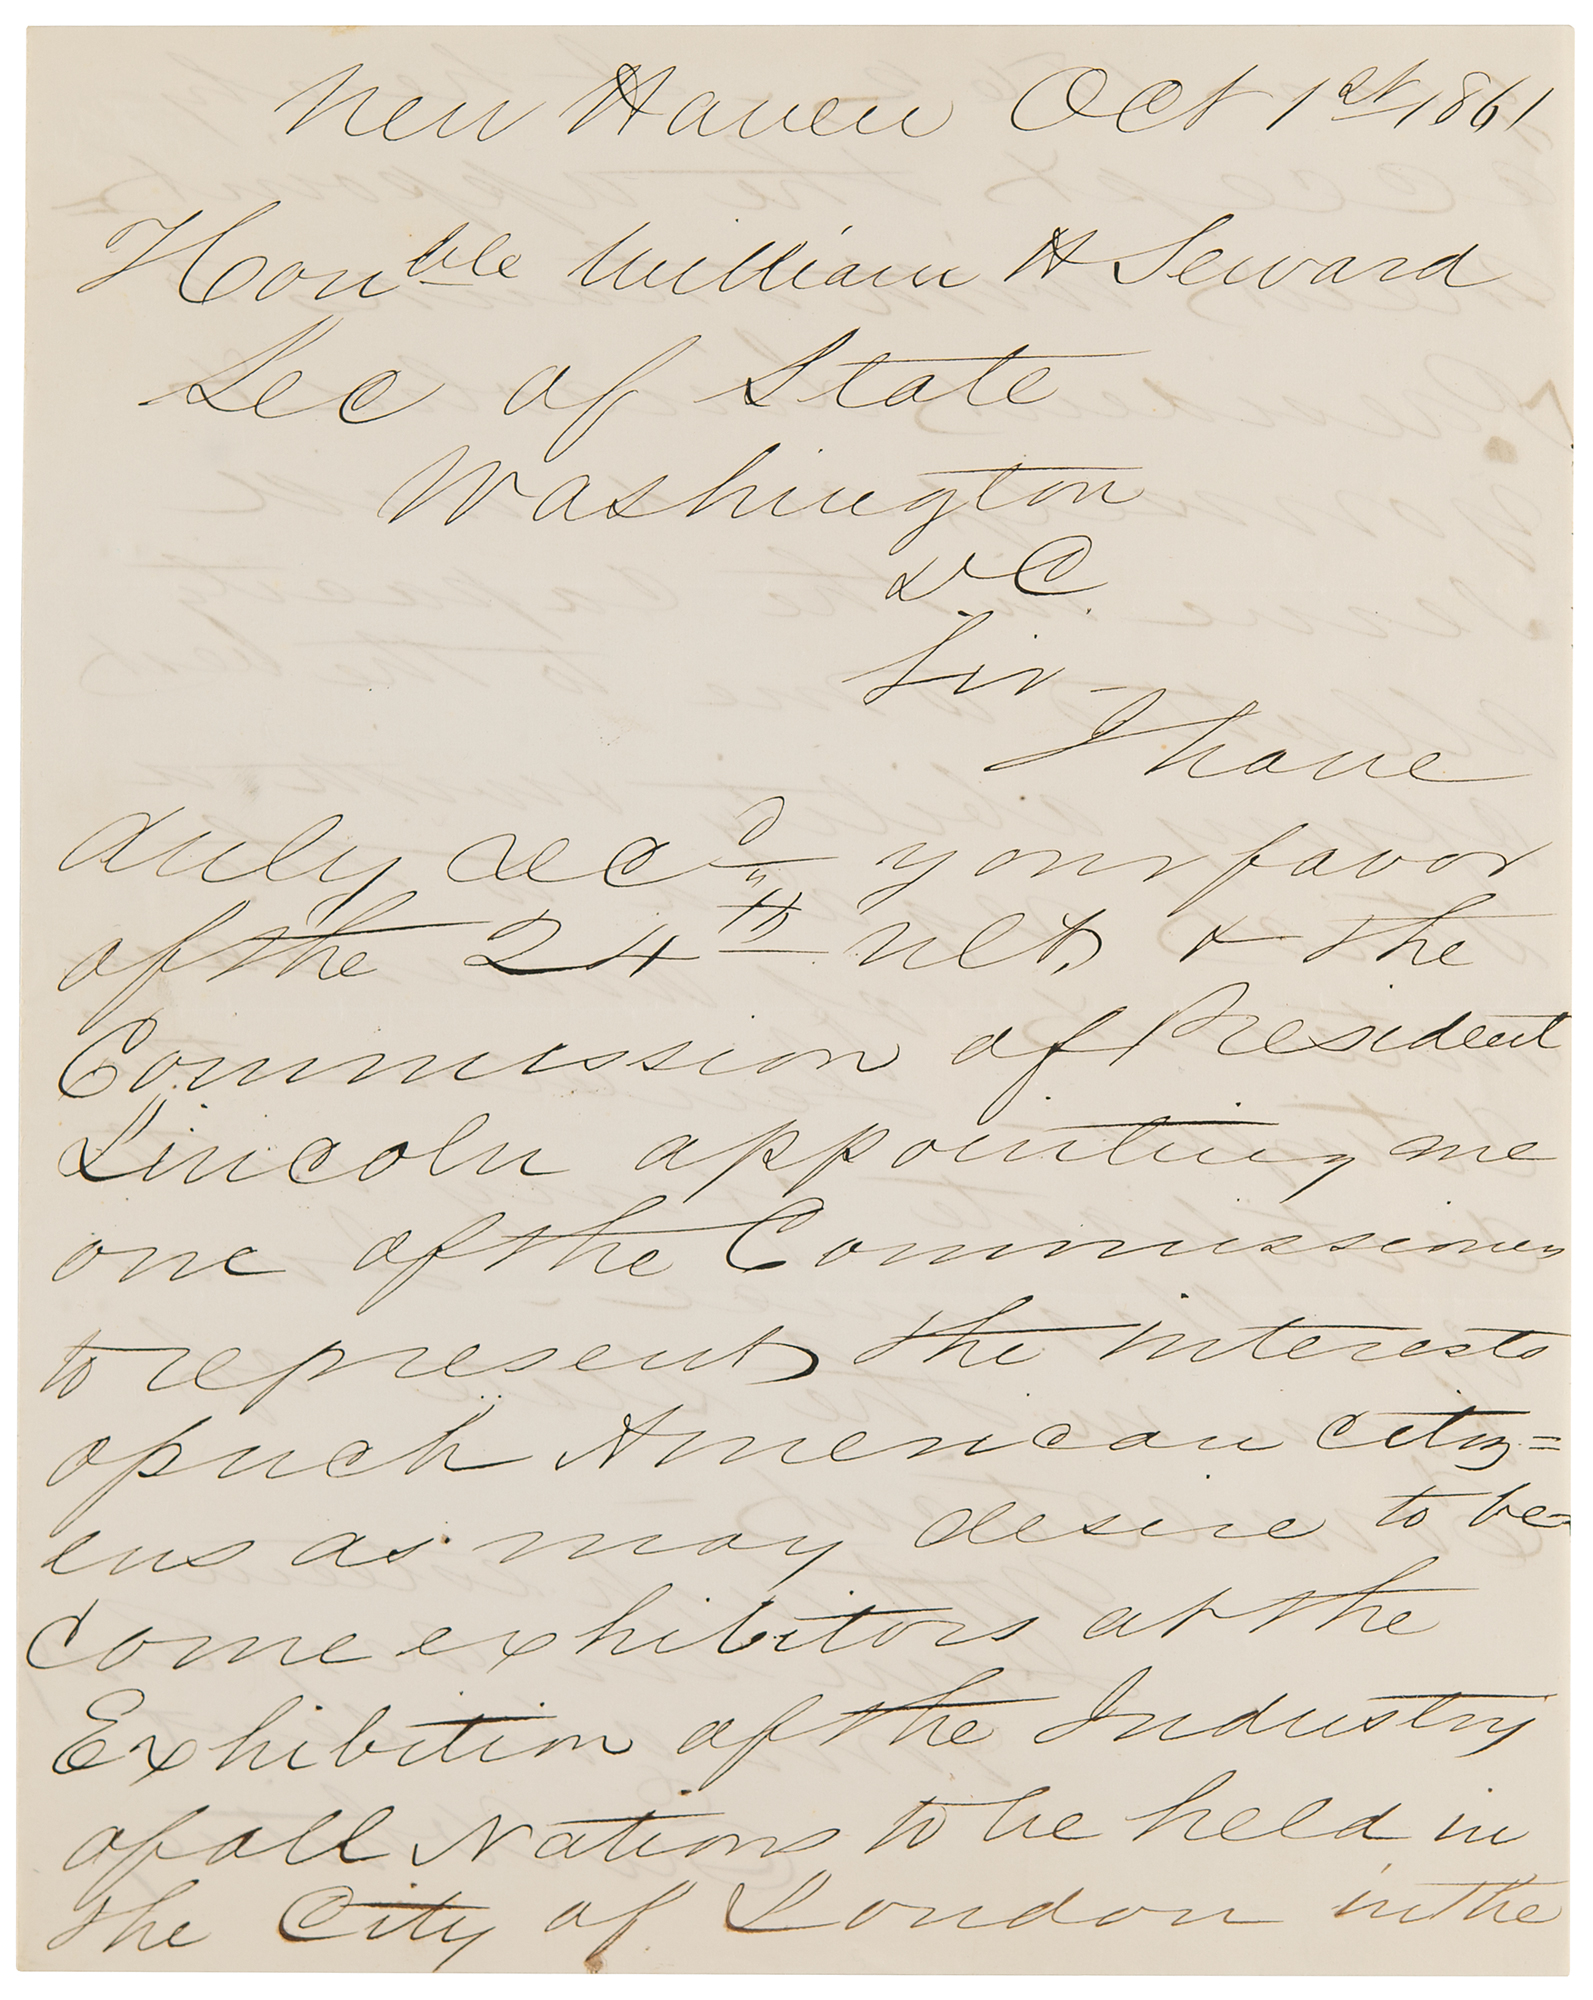 New Haven Oct 1st 1861
Honble William H Seward
Sec of State
Washington
D C.
Sir -
I have
duly recd your favor
of the 24th ult. & the
Commission of President
Lincoln appointing me
one of the Commissioners
to represent the interests
of such American citiz=
ens as may desire to be=
come exhibitors at the
Exhibition of the Industry
of all Nations to be held in
the City of London in the